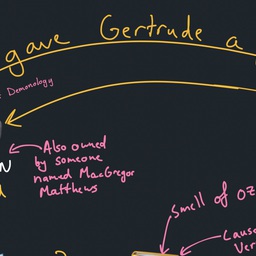 gave Gertrude a
Demonology
Also owned
by someone
named MacGregor
Matthews
Smell of Oz
Cause
Ver